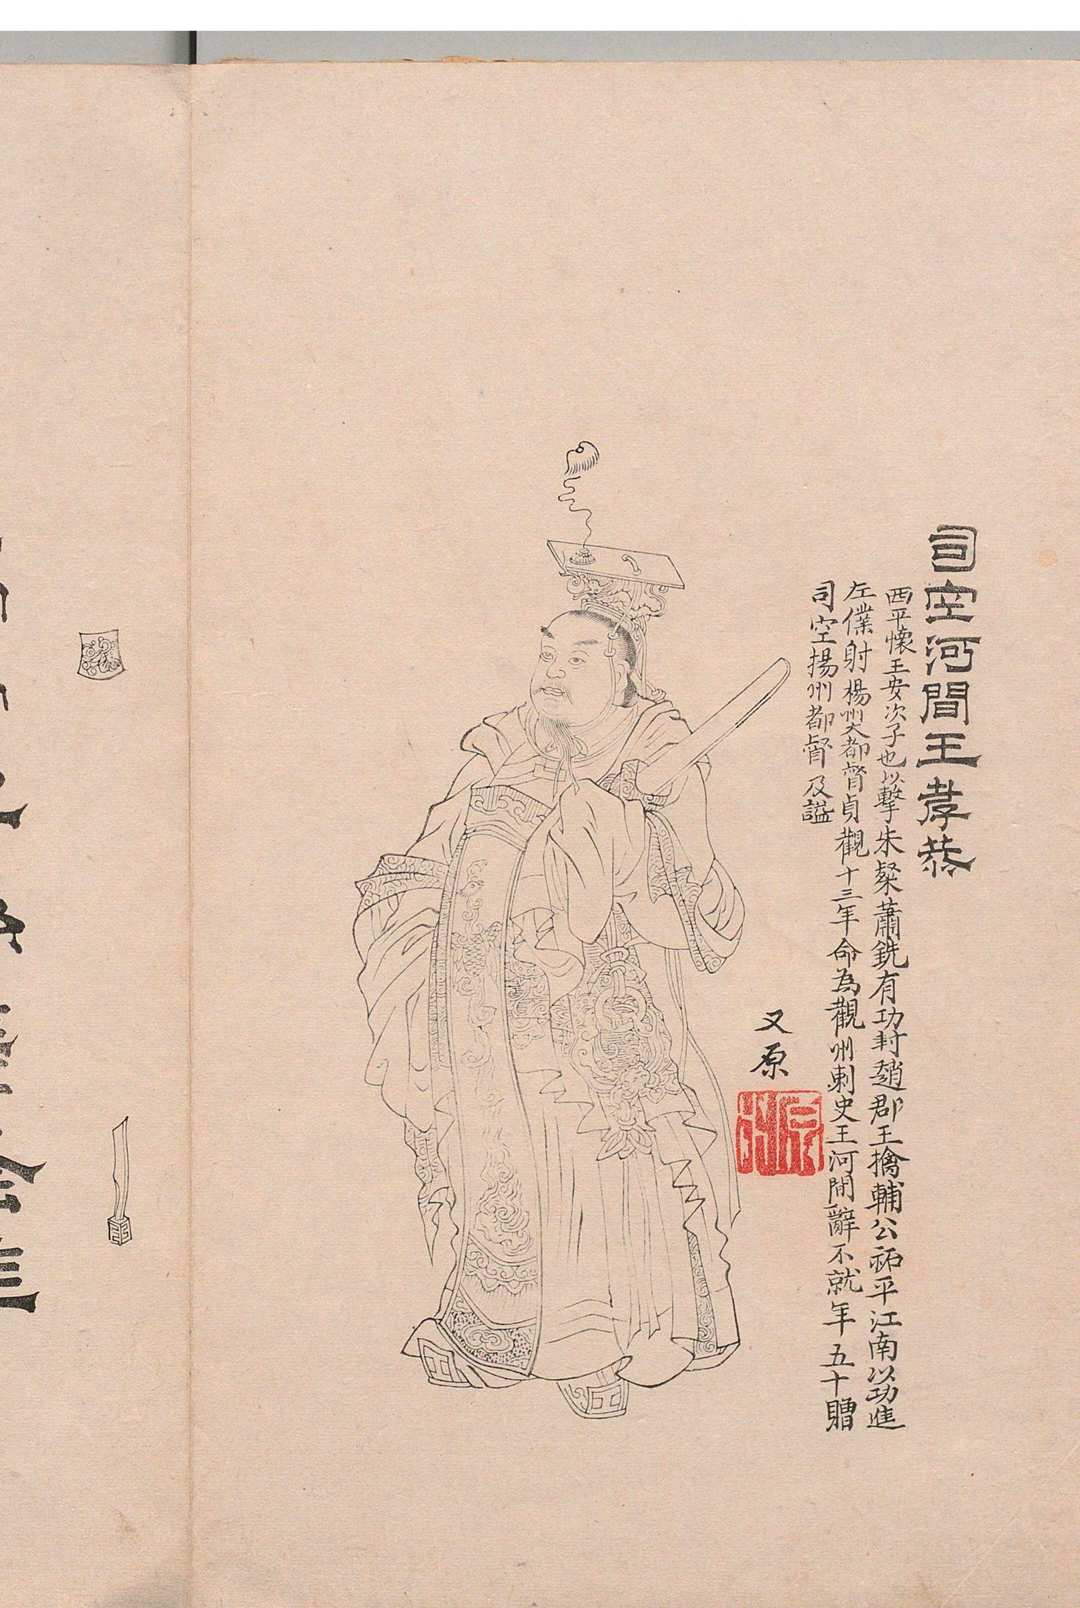 司空河間王孝恭
西平懷王安次子也以擊朱粲蕭銑有功封趙郡王擒輔公祏平江南以功進
左僕射楊州大都督貞觀十三年命為觀州刺史王河間辭不就年五十贈
司空揚州都督及謚
又原